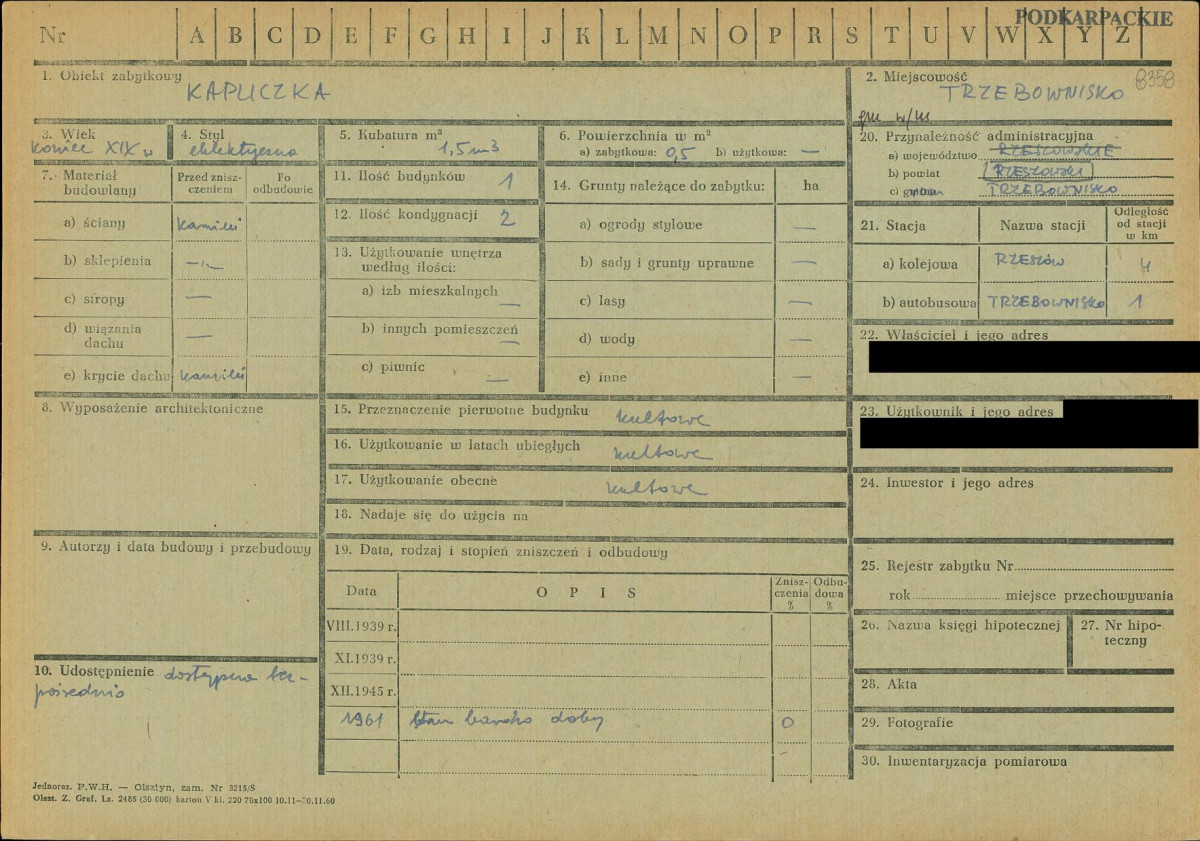 PODKARPACKIE
Nr A B C D E F G H I J K L M N O P R S T U V W X Y Z
1. Obiekt zabytkowy
KAPLICZKA
2. Miejscowość 8358
TRZEBOWNISKO
gm w/m
3. Wiek
koniec XIX w
4. Styl
eklektyczna
5. Kubatura m³
1,5 m3
6. Powierzchnia w m²
a) zabytkowa: 0,5 b) użytkowa: —
20. Przynależność administracyjna
a) województwo RZESZOWSKIE
b) powiat RZESZOWSKI
c) gmina TRZEBOWNISKO
7. Materiał budowlany
Przed zniszczeniem
Po odbudowie
a) ściany kamień
b) sklepienia —"—
c) stropy —
d) wiązania dachu —
e) krycie dachu kamień
11. Ilość budynków 1
12. Ilość kondygnacji 2
13. Użytkowanie wnętrza według ilości:
a) izb mieszkalnych —
b) innych pomieszczeń —
c) piwnic —
14. Grunty należące do zabytku: ha
a) ogrody stylowe —
b) sady i grunty uprawne —
c) lasy —
d) wody —
e) inne —
21. Stacja Nazwa stacji Odległość od stacji w km
a) kolejowa RZESZÓW 4
b) autobusowa TRZEBOWNISKO 1
22. Właściciel i jego adres
8. Wyposażenie architektoniczne
15. Przeznaczenie pierwotne budynku kultowe
16. Użytkowanie w latach ubiegłych kultowe
17. Użytkowanie obecne kultowe
18. Nadaje się do użycia na
23. Użytkownik i jego adres
24. Inwestor i jego adres
9. Autorzy i data budowy i przebudowy
19. Data, rodzaj i stopień zniszczeń i odbudowy
Data OPIS Zniszczenia % Odbudowa %
VIII.1939 r.
XI.1939 r.
XII.1945 r.
1961 stan bardzo dobry 0
25. Rejestr zabytku Nr
rok miejsce przechowywania
26. Nazwa księgi hipotecznej
27. Nr hipoteczny
28. Akta
29. Fotografie
30. Inwentaryzacja pomiarowa
10. Udostępnienie dostępna bez-
pośrednio
Jednoraz. P.W.H. — Olsztyn, zam. Nr 3215/S
Olszt. Z. Graf. Lz. 2485 (30 000) karton V kl. 220 70x100 10.11—30.11.60